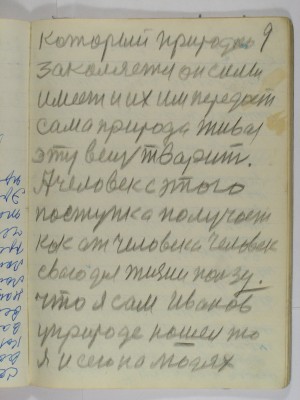 который природою 9
закаляети он силы
имеет и их им передает
сама природа жива
эту вещ творит.
А человек с этого
поступка получает
как от человека человек
свого для жизни пользу.
что я сам Иванов
у природе нашел то
я и сею на людях